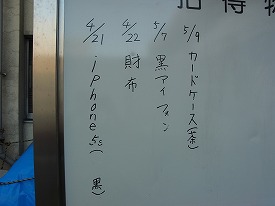 拾得物
5/9 カードケース(茶)
5/7 黒アイフォン
4/22 財布
4/21 iphone5s(黒)